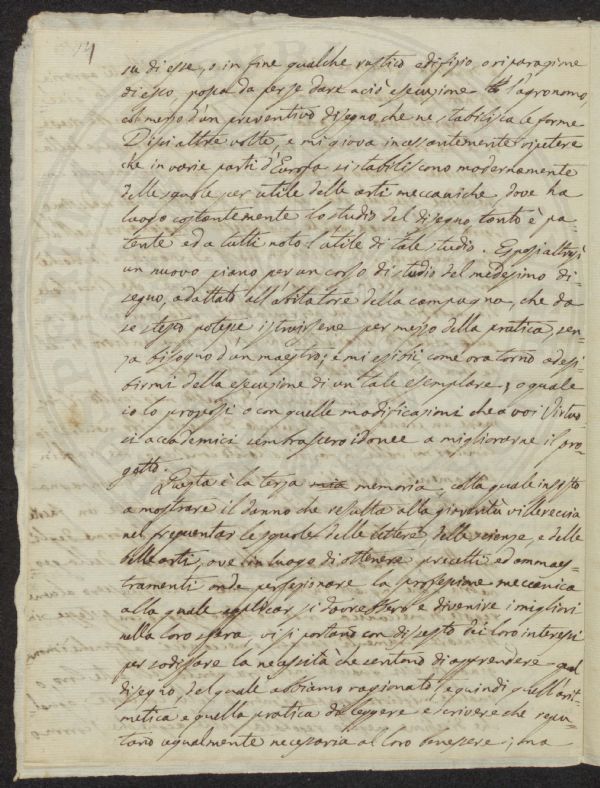 su di esse, o in fine qualche rustico edifizio, o riparazione
di esso possa da per se dare a ciò esecuzione l'agronomo,
col mezzo d'un preventivo disegno, che ne stabilisca le forme
Dissi altre volte, e mi giova incessantemente ripetere
che in varie parti d'Europa si stabiliscono modernamente
delle squole per utile delle arti meccaniche, dove ha
luogo costantemente lo studio del disegno tanto è pa-
tente ed a tutti noto l'utile di tale studio. Esposi altresì
un nuovo piano per un corso di studio del medesimo di-
segno, adattato all'abitatore della campagna, che da
se stesso potesse istruirsene per mezzo della pratica, sen-
za bisogno d'un maestro; e mi esibii come ora torno ad esi-
birmi della esecuzione di un tale esemplare, o quale
io lo proposi o con quelle modificazioni che a voi Virtuo-
si accademici sembrassero idonee a migliorarne il pro-
getto.
Questa è la terza mia memoria, colla quale insisto
a mostrare il danno che resulta alla gioventù villereccia
nel frequentar le squole delle lettere delle scienze, e delle
delle arti, ove in luogo di ottenere precetti ed ammaes-
tramenti onde perfezionare la professione meccanica
alla quale applicar si dovrebbero e divenire i migliori
nella loro sfera, vi si portano con disesto dei loro interessi
per sodisfare la necessità che sentono di apprendere quel
disegno, del quale abbiamo ragionato, e quindi quell'arit-
metica e quella pratica di leggere e scrivere che repu-
tano egualmente necessaria al loro benessere; ma